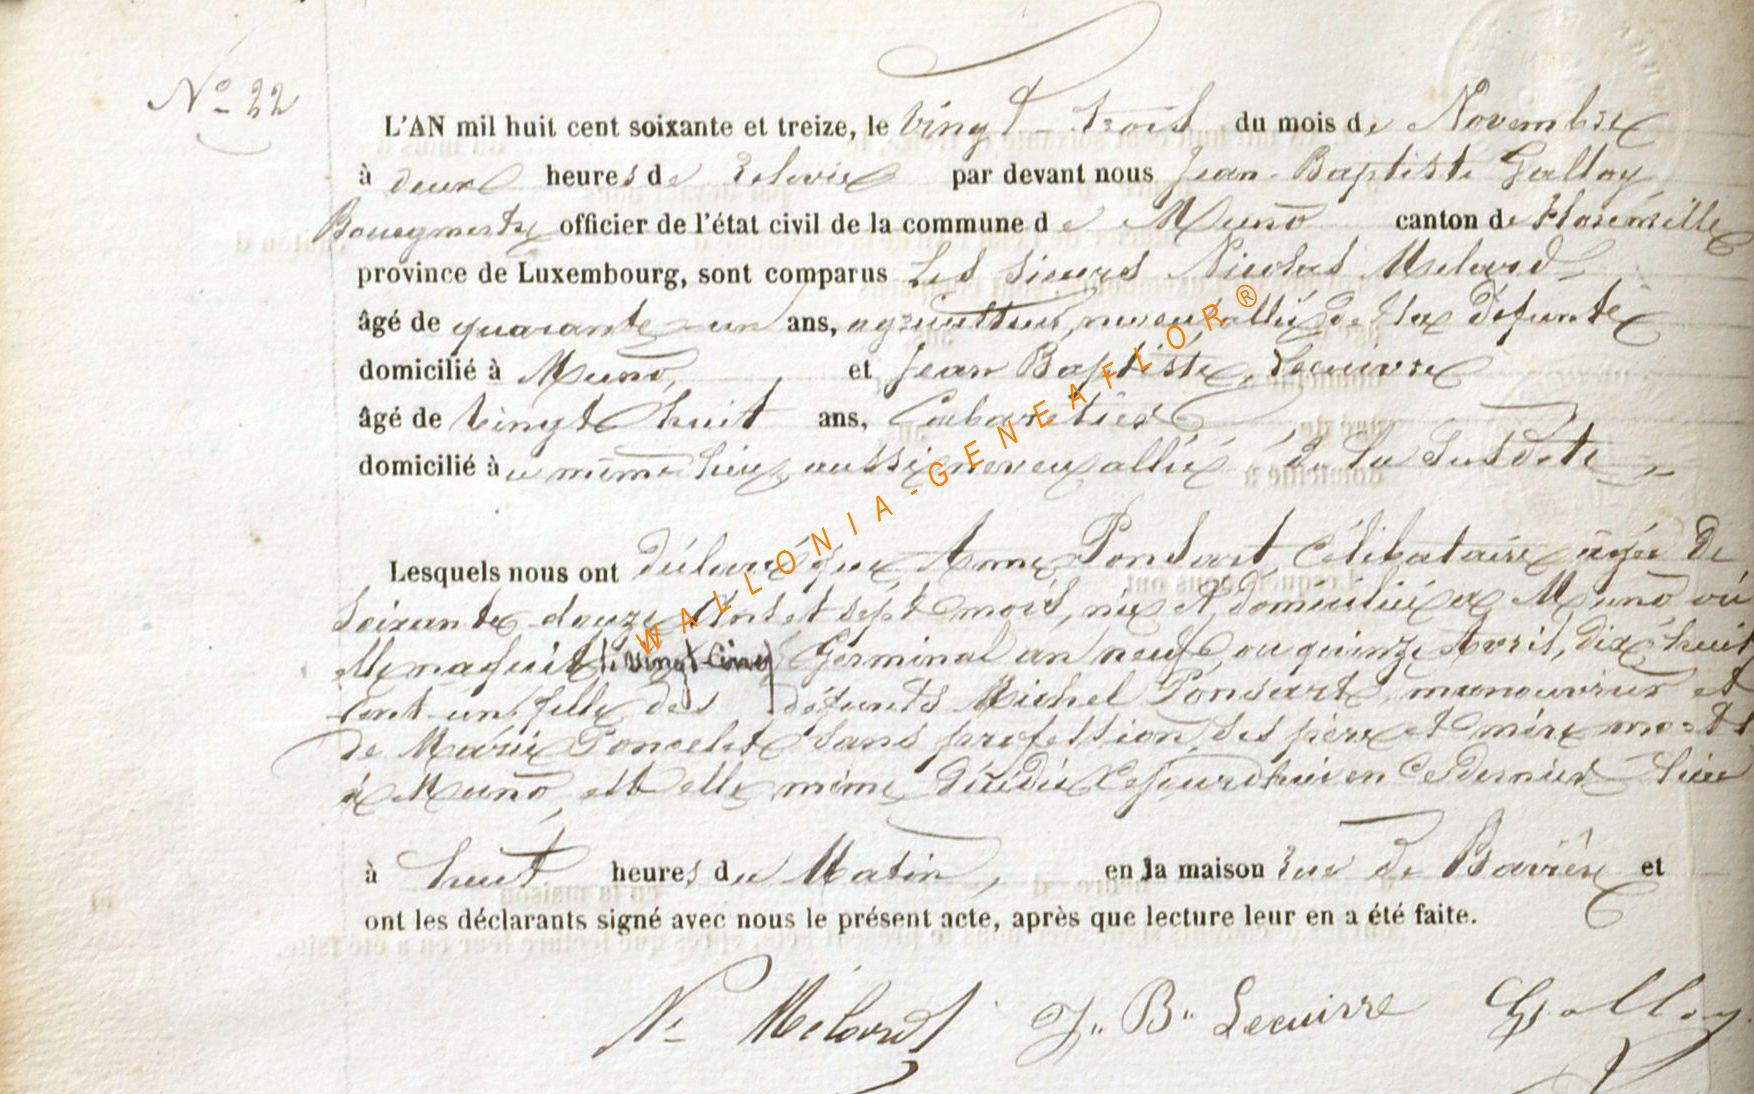 N° 22
L'AN mil huit cent soixante et treize, le Vingt-trois du mois de Novembre
à deux heures de relevée par devant nous Jean-Baptiste Galloy
Bourgmestre officier de l'état civil de la commune de Muno canton de Florenville
province de Luxembourg, sont comparus Les Sieurs Nicolas Melard
âgé de quarante-un ans, agriculteur, neveu allié de la défunte
domicilié à Muno, et Jean Baptiste Lecuivre
âgé de Vingt huit ans, Cabaretier
domicilié à u même lieu, aussi neveu allié de la Susdite
Lesquels nous ont déclaré que Anne Ponsart Célibataire âgée de
Soixante-douze Ans et sept mois, née et domiciliée à Muno où
elle naquit le vingt-cinq Germinal an neuf, ou quinze Avril, dix-huit
cent-un, fille des défunts Michel Ponsart, manouvrier et
de Marie Poncelet Sans profession, Ses père et mère morts
à Muno, est elle même décédée Cejourd'hui en Ce dernier lieu
à huit heures du Matin, en la maison rue de Bavière et
ont les déclarants signé avec nous le présent acte, après que lecture leur en a été faite.
N. Mélard J.. B.. Lecuivre Galloy
WALLONIA-GENEAFLOR®